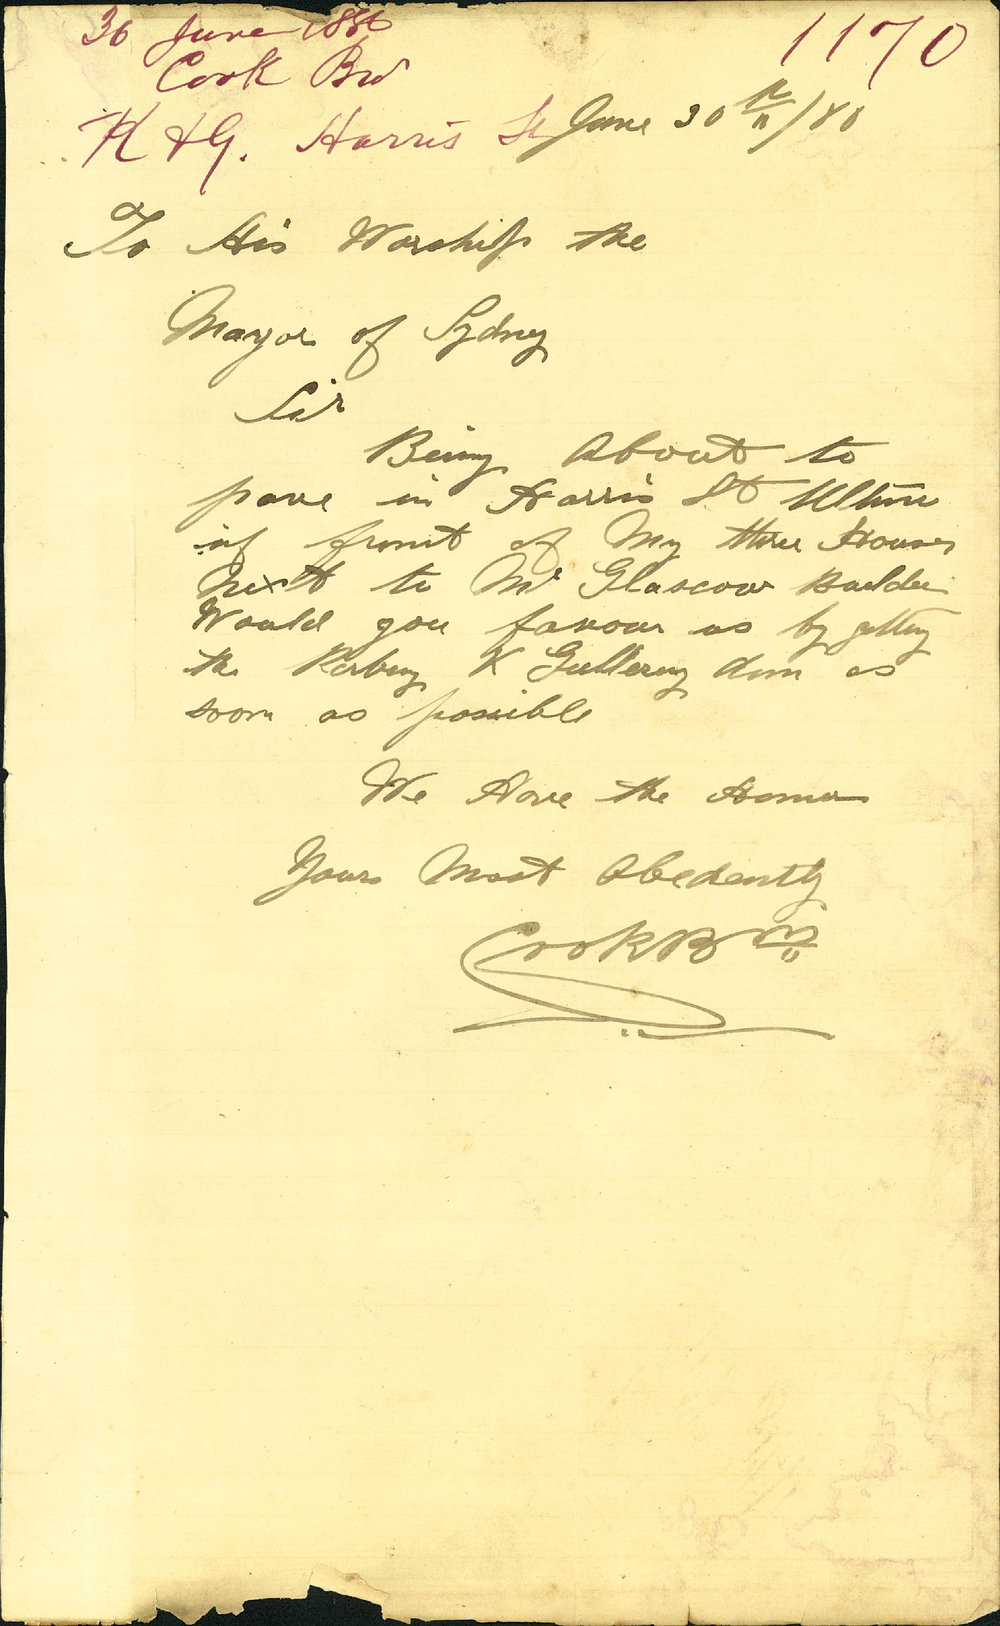 30 June 1880
1170
Cook Bro
K & G. Harris St
June 30th/80
To His Worship the
Mayor of Sydney
Sir
Being About to
pave in Harris St Ultimo
in front of My three Houses
Next to Mr Glascow Builder
Would you favour us by getting
the Kerbing & Guttering don as
soon as possible
We Have the Honour
Yours Most Obediently
Cook Bros